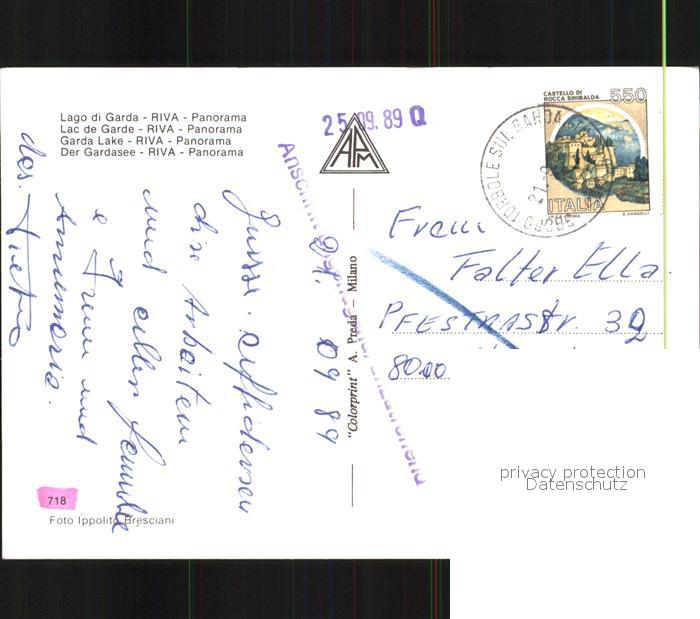 Lago di Garda - RIVA - Panorama
Lac de Garde - RIVA - Panorama
Garda Lake - RIVA - Panorama
Der Gardasee - RIVA - Panorama
25.09.89 Q
APM
CASTELLO DI
ROCCA SINIBALDA
550
ITALIA
TORBOLE SUL GARDA
Frau
Falter Ella
PFESTRASStr. 32
8000
21 09 89
die Arbeiten
und allen Familie
e Frau und
Annamaria.
"Colorprint" A. Preda – Milano
718
Foto Ippolito Bresciani
privacy protection
Datenschutz